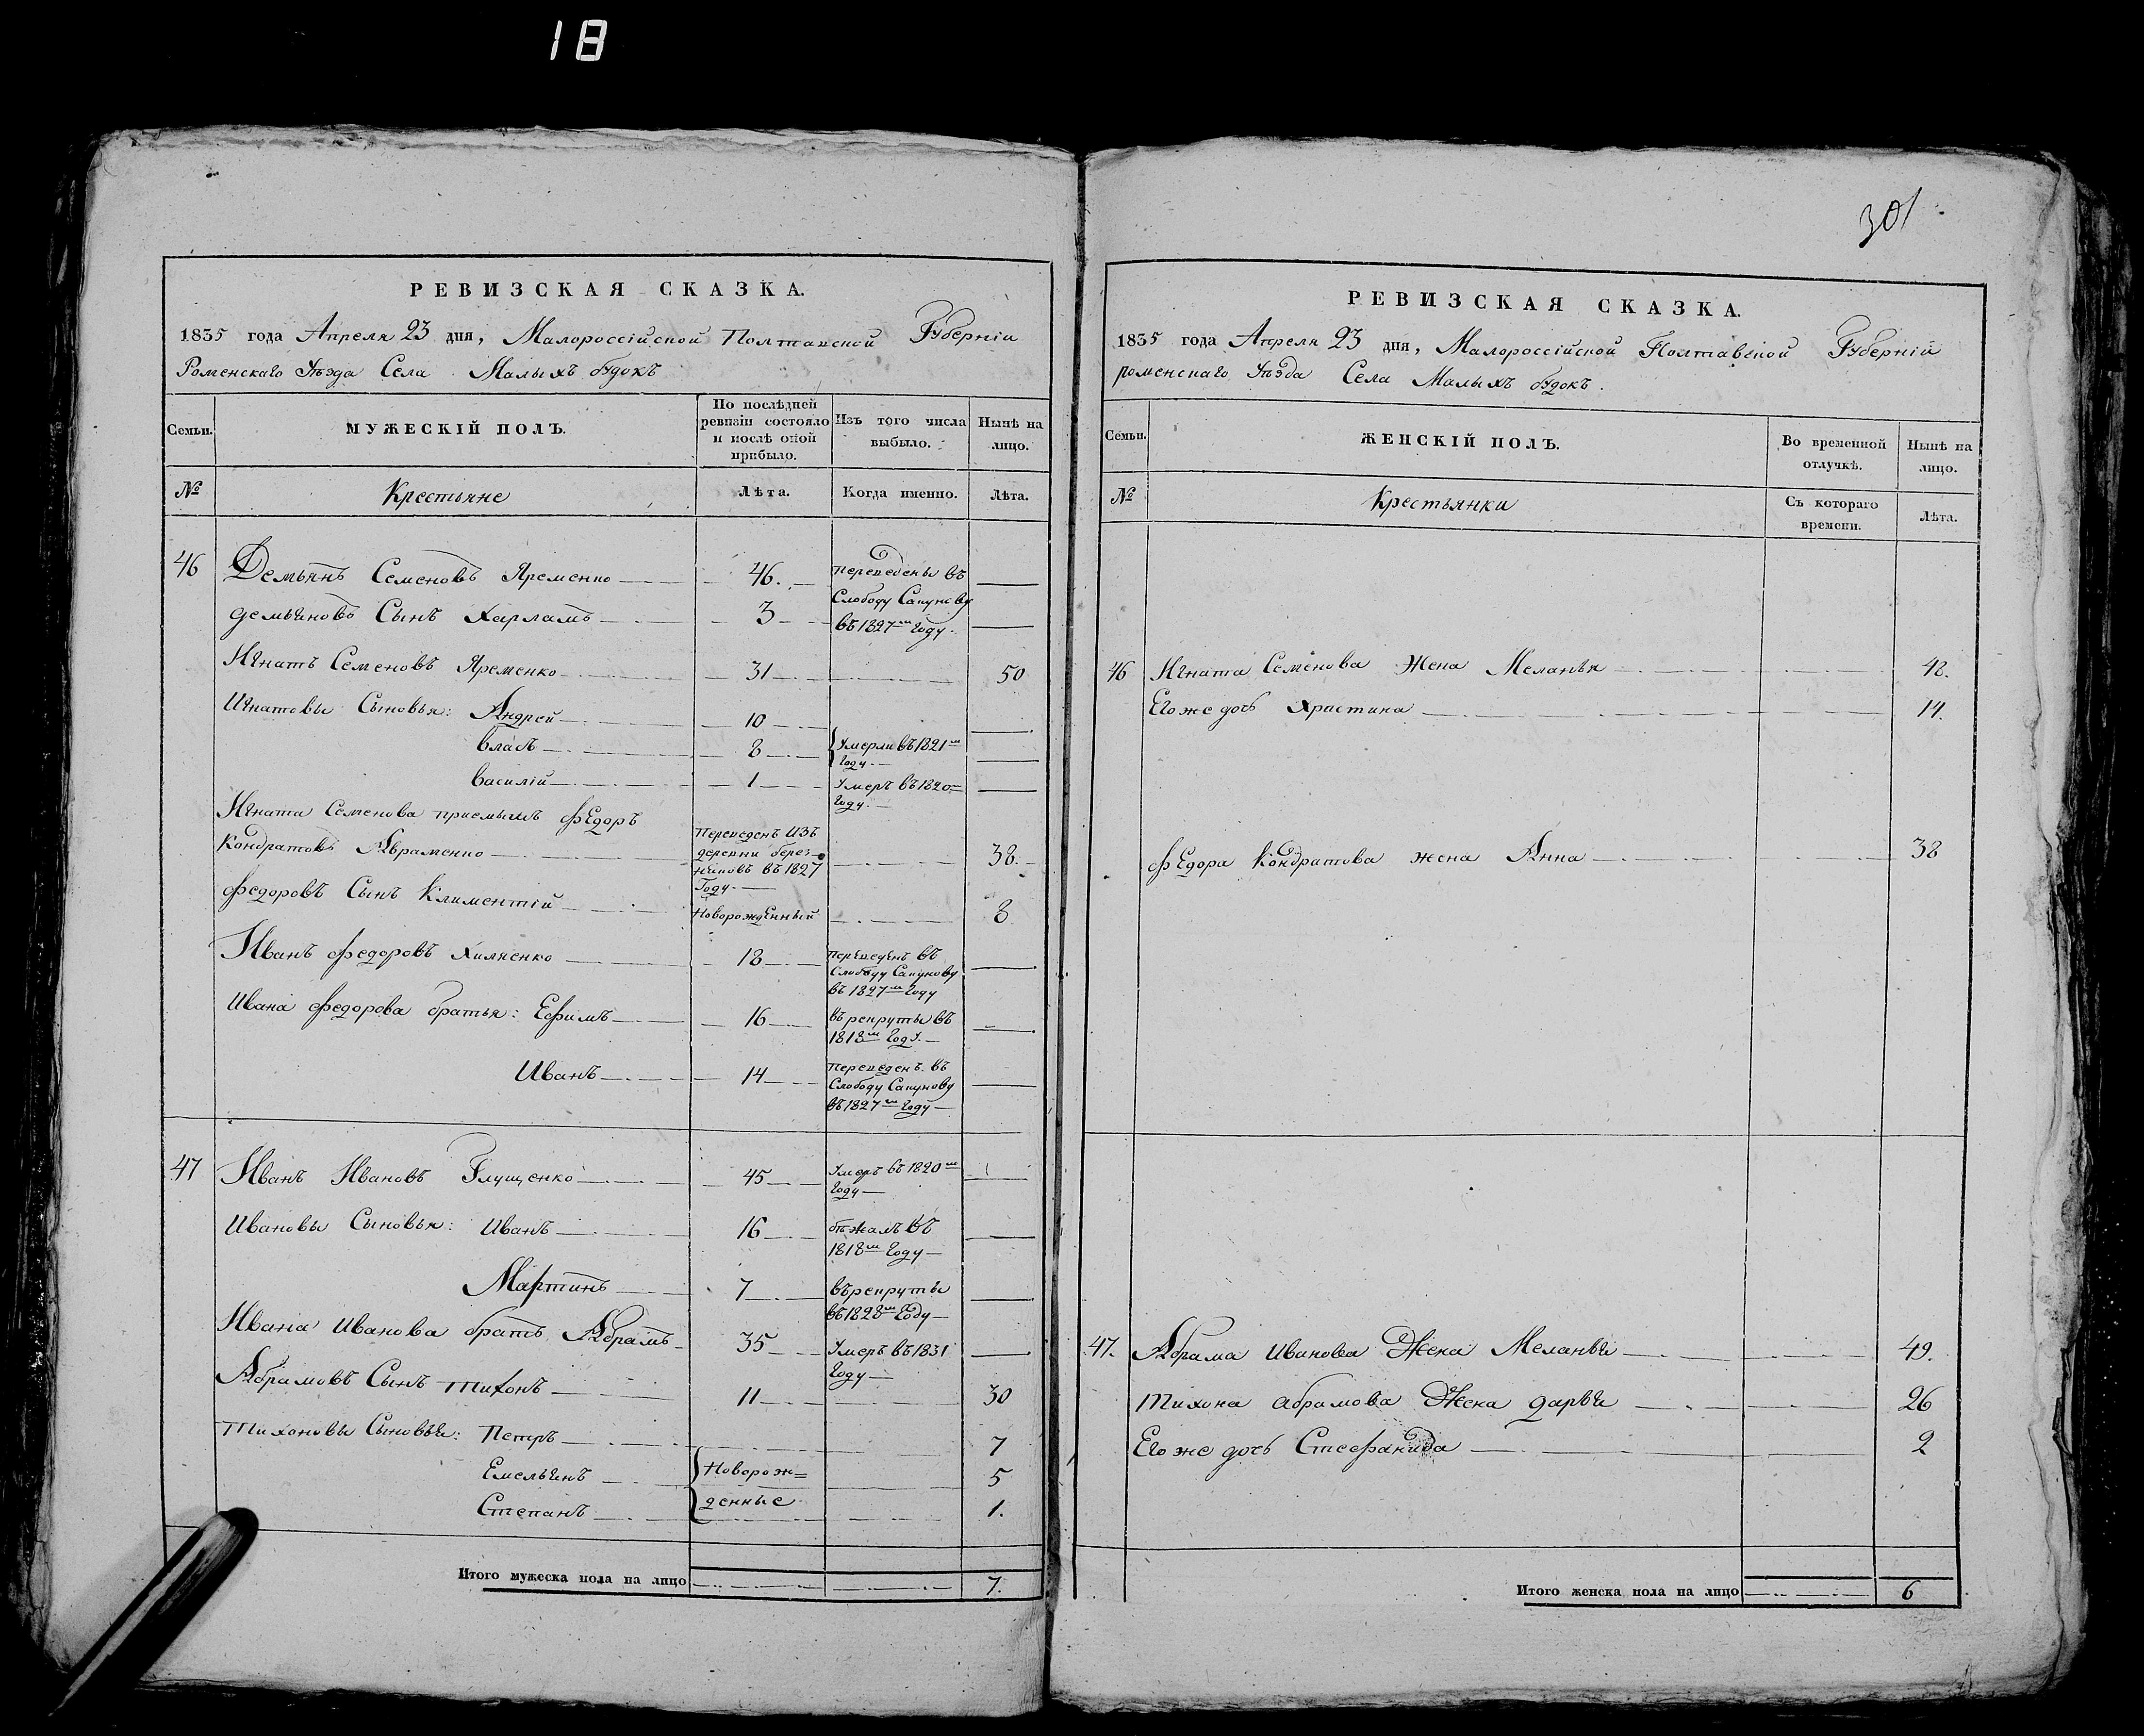 18
301
РЕВИЗСКАЯ СКАЗКА.
1835 года Апреля 23 дня, Малороссійской Полтавской Губерніи
Роменскаго Уѣзда Села Малыхъ Будокъ
Семьи.
МУЖЕСКІЙ ПОЛЪ.
По послѣдней ревизіи состояло и послѣ оной прибыло.
Изъ того числа выбыло.
Нынѣ на лицо.
№ Крестьяне Лѣта. Когда именно. Лѣта.
46 Демьянъ Семеновъ Яременко 46. Переведены въ
Демьяновъ Сынъ Харламъ 3 Слободу Сапунову въ 1827м Году.
Игнатъ Семеновъ Яременко 31 50
Игнатовы Сыновья: Андрей 10
Власъ 8 Умерли въ 1821м Году.
Василій 1 Умеръ въ 1820м Году.
Игната Семенова приемышъ Федоръ
Кондратовъ Авраменко Переведенъ изъ деревни Березняковъ въ 1827 Году. 38.
Федоровъ Сынъ Климентій Новорожденный 8
Иванъ Федоровъ Хиленко 18 Переведенъ въ Слободу Сапунову въ 1827м Году
Ивана Федорова братья: Ефимъ 16 въ рекруты въ 1818м Году.
Иванъ 14 Переведенъ въ Слободу Сапунову въ 1827м Году
47 Иванъ Ивановъ Глущенко 45 Умеръ въ 1820м Году
Ивановы Сыновья: Иванъ 16 бѣжалъ въ 1818м Году
Мартинъ 7 въ рекруты въ 1828м Году
Ивана Иванова братъ Абрамъ 35 Умеръ въ 1831 Году
Абрамовъ Сынъ Тихонъ 11 30
Тихоновы Сыновья: Петръ 7
Емельянъ Новорож= 5
Степанъ денные 1.
Итого мужеска пола на лицо 7.
РЕВИЗСКАЯ СКАЗКА.
1835 года Апреля 23 дня, Малороссійской Полтавской Губерній
роменскаго Уѣзда Села Малыхъ будокъ.
Семьи.
ЖЕНСКІЙ ПОЛЪ.
Во временной отлучкѣ.
Нынѣ на лицо.
№ Крестьянки Съ котораго времени. Лѣта.
46 Игната Семенова Жена Меланья 48.
Его же дочь Христина 14.
Федора Кондратова жена Анна 38
47. Абрама Иванова Жена Меланья 49.
Тихона Абрамова Жена Дарья 26
Его же дочь Стефанида 2
Итого женска пола на лицо 6